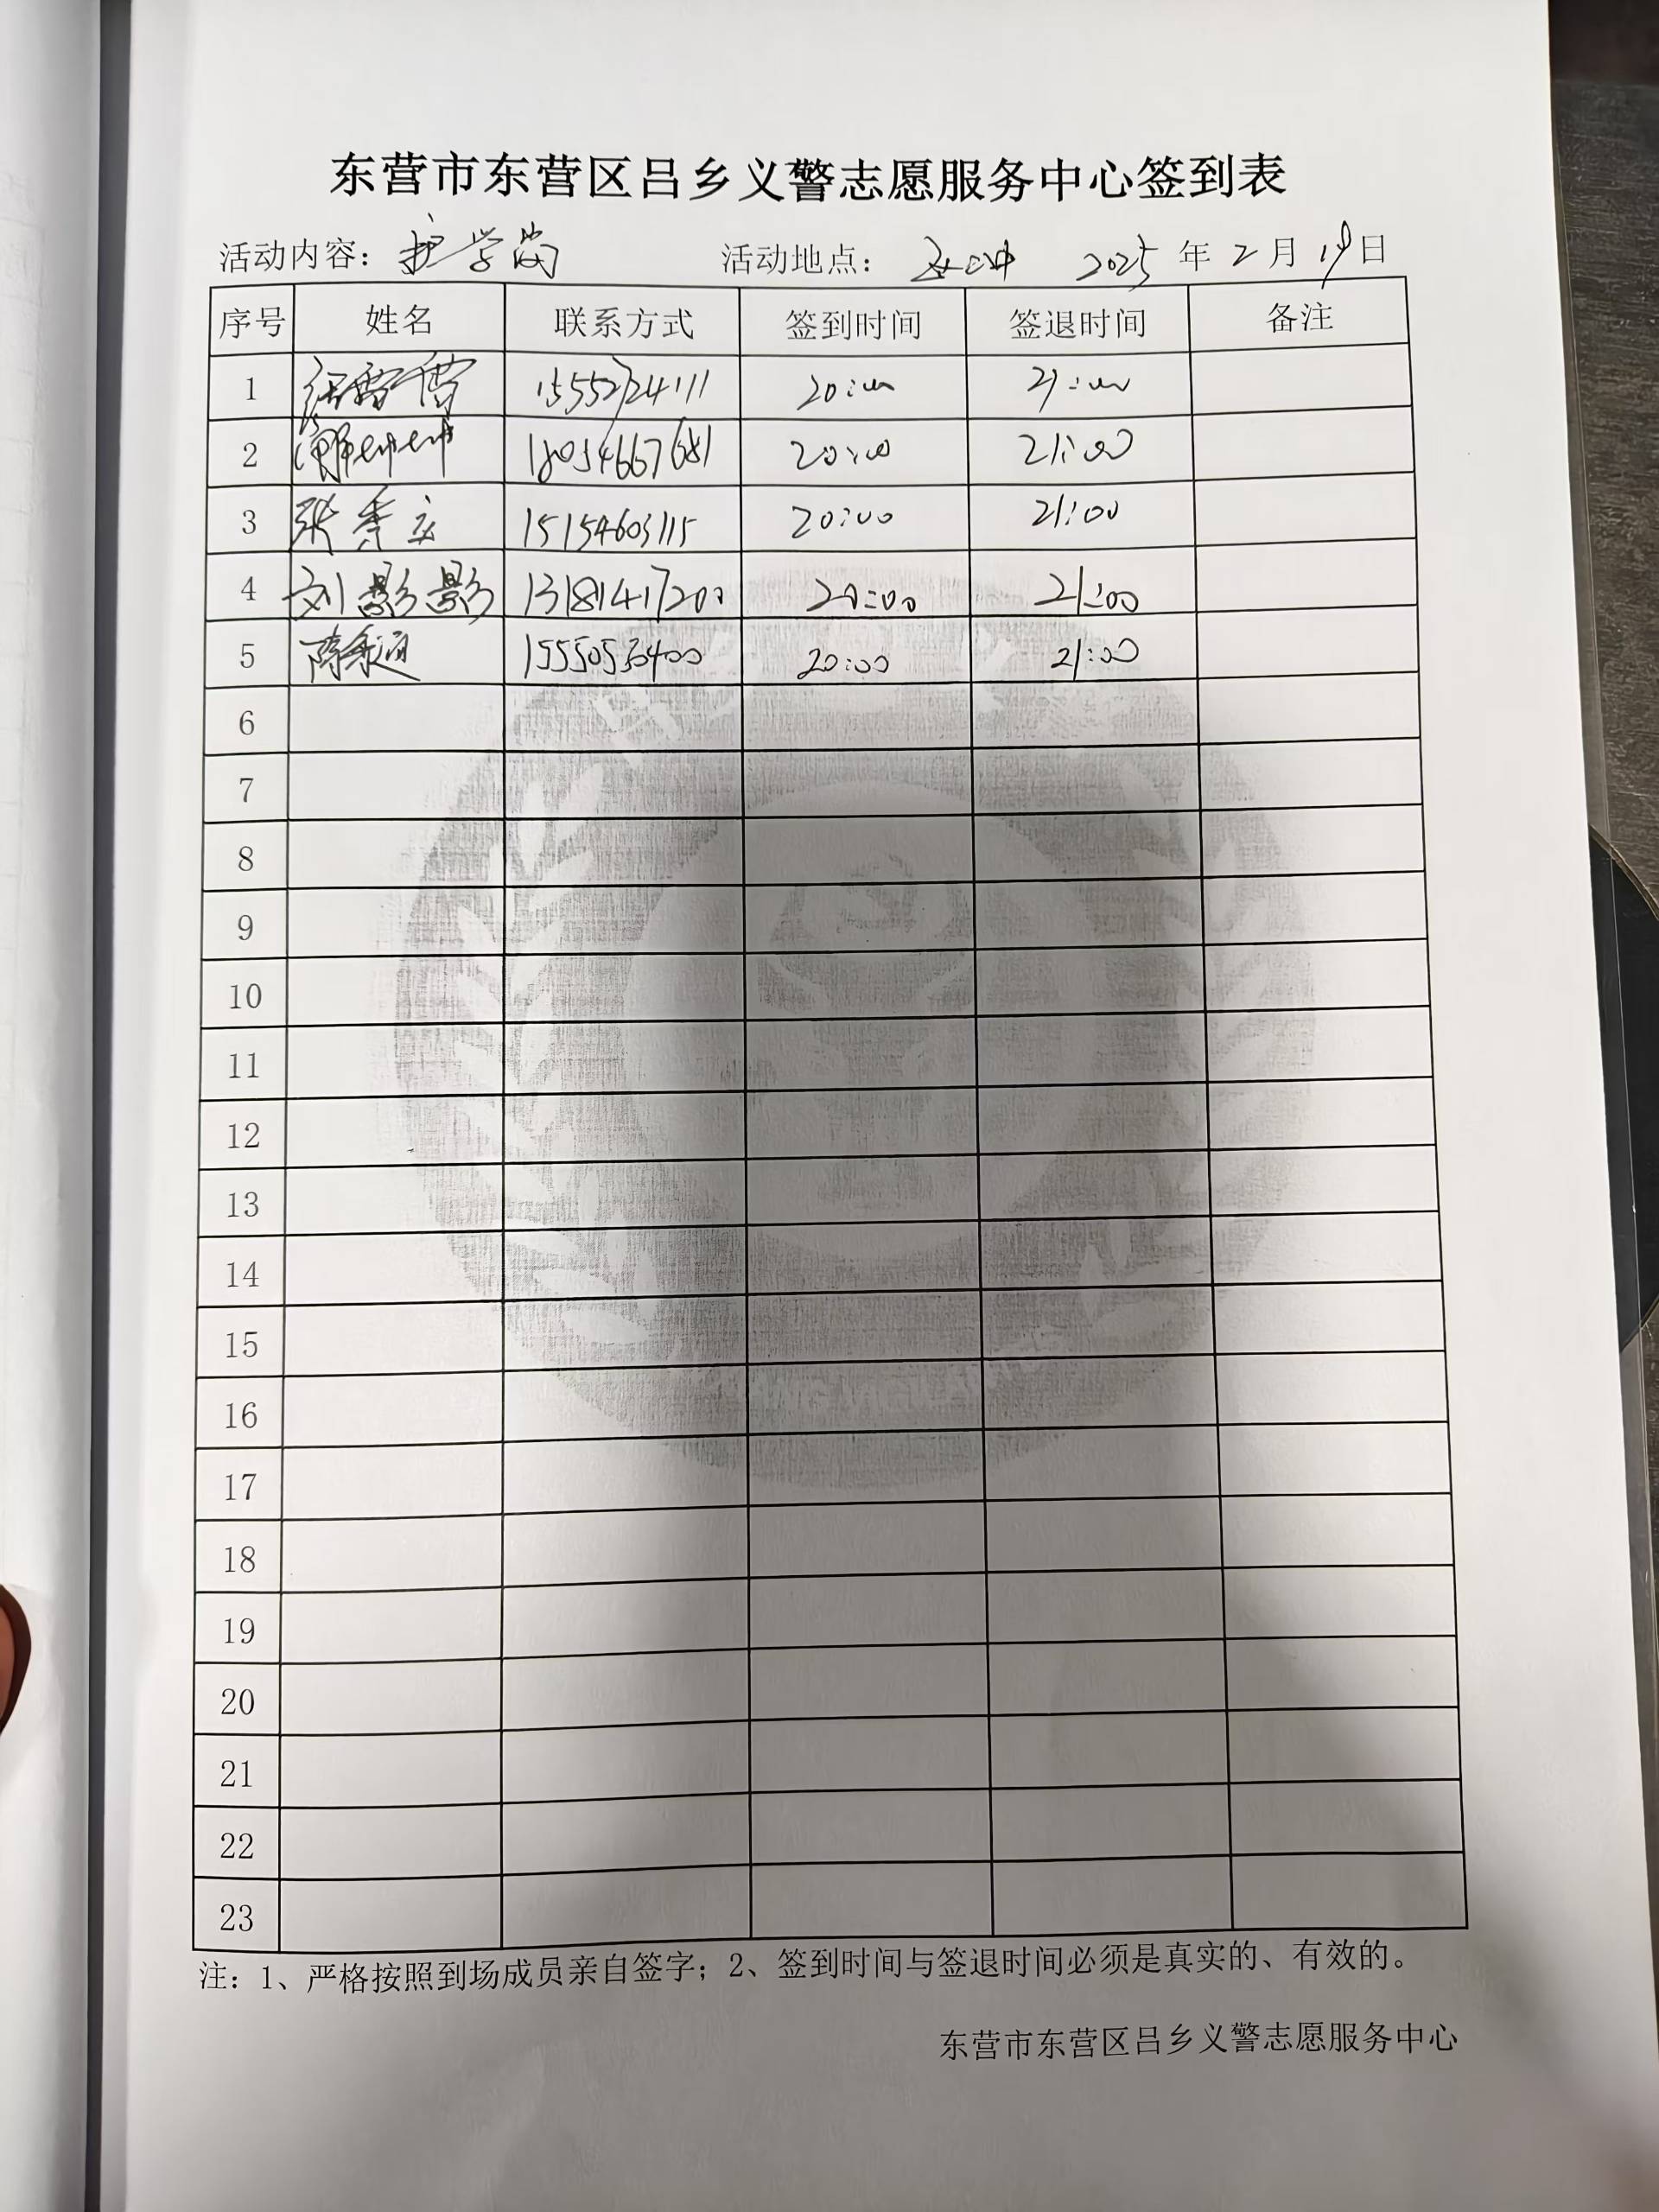 东营市东营区吕乡义警志愿服务中心签到表
活动内容：护学岗 活动地点： 2025年2月19日
序号 姓名 联系方式 签到时间 签退时间 备注
1 15552724111 20:00 21:00
2 18054667681 20:00 21:00
3 张秀立 15154603115 20:00 21:00
4 刘影影 13181417200 20:00 21:00
5 15550530400 20:00 21:00
6
7
8
9
10
11
12
13
14
15
16
17
18
19
20
21
22
23
注：1、严格按照到场成员亲自签字；2、签到时间与签退时间必须是真实的、有效的。
东营市东营区吕乡义警志愿服务中心